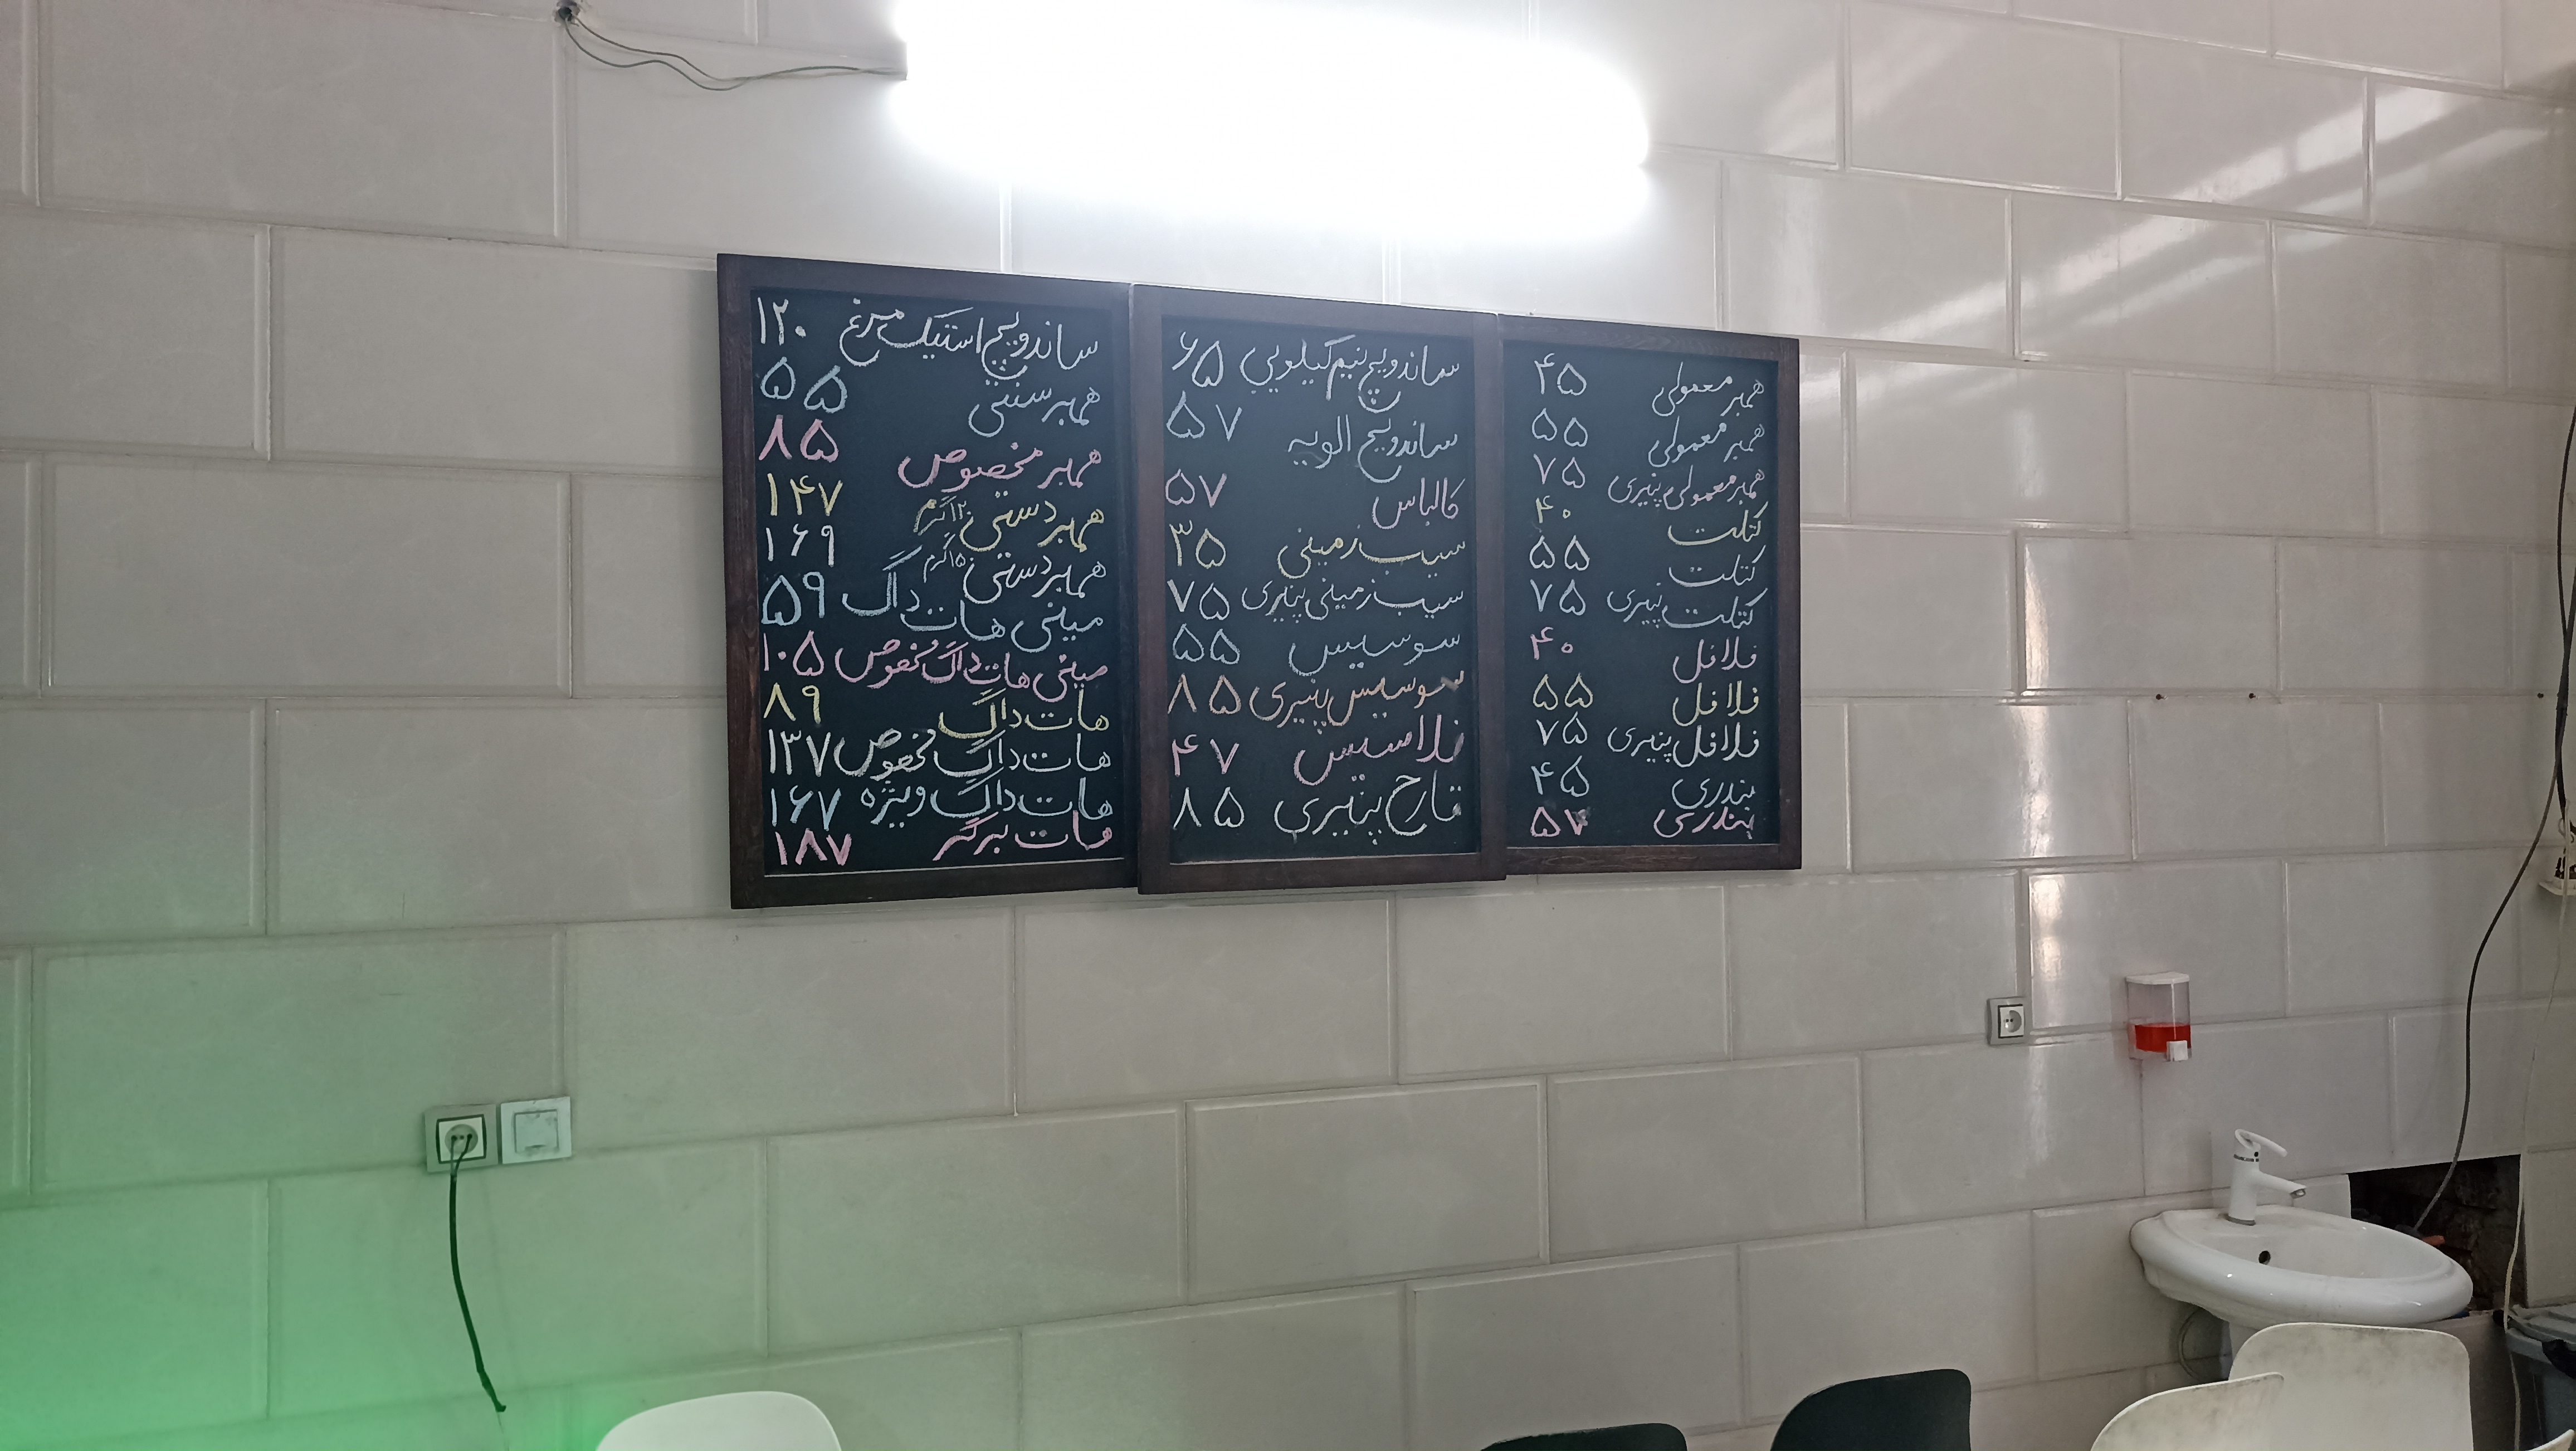 همبر معمولی ۴۵
همبر معمولی ۵۵
همبر معمولی پنیری ۷۵
کتلت ۴۰
کتلت ۵۵
کتلت پنیری ۷۵
فلافل ۴۰
فلافل ۵۵
فلافل پنیری ۷۵
بندری ۴۵
بندری ۵۷
ساندویچ نیم کیلویی ۶۵
ساندویچ الویه ۵۷
کالباس ۵۷
سیب زمینی ۳۵
سیب زمینی پنیری ۷۵
سوسیس ۵۵
سوسیس پنیری ۸۵
فلاسیس ۴۷
قارچ پنیری ۸۵
ساندویچ استیک مرغ ۱۲۰
همبر سنتی ۵۵
همبر مخصوص ۸۵
همبر دستی ۱۲۰ گرم ۱۴۷
همبر دستی ۱۵۰ گرم ۱۶۹
مینی هات داگ ۵۹
مینی هات داگ مخصوص ۱۰۵
هات داگ ۸۹
هات داگ مخصوص ۱۳۷
هات داگ ویژه ۱۶۷
هات برگر ۱۸۷